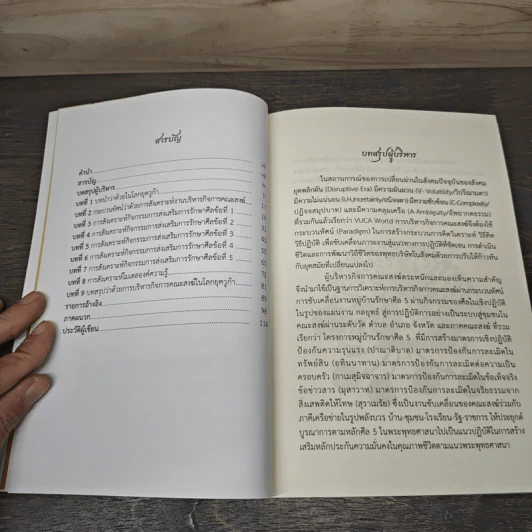 สารบัญ
คำนำ
สารบัญ
บทสรุปผู้บริหาร
บทที่ 1 บทนำว่าด้วยในโลกยุควูก้า
บทที่ 2 กระบวนทัศน์ว่าด้วยการสังเคราะห์งานบริหารกิจการคณะสงฆ์
บทที่ 3 การสังเคราะห์กิจกรรมการส่งเสริมการรักษาศีลข้อที่ 1
บทที่ 4 การสังเคราะห์กิจกรรมการส่งเสริมการรักษาศีลข้อที่ 2
บทที่ 5 การสังเคราะห์กิจกรรมการส่งเสริมการรักษาศีลข้อที่ 3
บทที่ 6 การสังเคราะห์กิจกรรมการส่งเสริมการรักษาศีลข้อที่ 4
บทที่ 7 การสังเคราะห์กิจกรรมการส่งเสริมการรักษาศีลข้อที่ 5
บทที่ 8 การสังเคราะห์โมเดลองค์ความรู้
บทที่ 9 บทสรุปว่าด้วยการบริหารกิจการคณะสงฆ์ในโลกยุควูก้า
รายการอ้างอิง
ภาคผนวก
ประวัติผู้เขียน
บทสรุปผู้บริหาร
ในสถานการณ์ของการเปลี่ยนผ่านในสังคมปัจจุบันของสังคม
ยุคพลิกผัน (Disruptive Era) มีความผันผวน (V- Volatility/วิปริณามตา)
มีความไม่แน่นอน (U-Uncertainty/อนิจจตา) มีความซับซ้อน (C-Complexity/
ปฏิจจสมุปบาท) และมีความคลุมเครือ (A-Ambiguity/อัพยากตธรรม)
ที่รวมกันแล้วเรียกว่า VUCA World การบริหารกิจการคณะสงฆ์จึงต้องใช้
กระบวนทัศน์ (Paradigm) ในการสร้างกระบวนการคิดวิเคราะห์ วิธีคิด
วิธีปฏิบัติ เพื่อขับเคลื่อนภาระงานสู่แนวทางการปฏิบัติที่ชัดเจน การดำเนิน
ชีวิตและการพัฒนาวิถีชีวิตของพุทธบริษัทในสังคมด้วยการปรับให้ก้าวทัน
กับยุคสมัยที่เปลี่ยนแปลงไป
ผู้บริหารกิจการคณะสงฆ์ตระหนักและมองเห็นความสำคัญ
จึงนำมาใช้เป็นฐานการวิเคราะห์การบริหารกิจการคณะสงฆ์ผ่านกระบวนทัศน์
การขับเคลื่อนงานหมู่บ้านรักษาศีล 5 ผ่านกิจกรรมของศีลในเชิงปฏิบัติ
ในรูปของแผนงาน กลยุทธ์ สู่การปฏิบัติการอย่างเป็นระบบสู่ชุมชนใน
คณะสงฆ์ระดับวัด ตำบล อำเภอ จังหวัด และภาคคณะสงฆ์ ที่รวม
เรียกว่า โครงการหมู่บ้านรักษาศีล 5 ที่มีการสร้างมาตรการเชิงปฏิบัติ
ป้องกันความรุนแรง (ปาณาติบาต) มาตรการป้องกันการละเมิดใน
ทรัพย์สิน (อทินนาทาน) มาตรการป้องกันการละเมิดต่อความเป็น
ครอบครัว (กาเมสุมิจฉาจาร) มาตรการป้องกันการละเมิดในข้อเท็จจริง
ข้อข่าวสาร (มุสาวาท) มาตรการป้องกันการละเมิดในจริยธรรมจาก
สิ่งเสพติดให้โทษ (สุราเมรัย) ซึ่งเป็นงานขับเคลื่อนของคณะสงฆ์ร่วมกับ
ภาคีเครือข่ายในรูปพลังบวร บ้าน-ชุมชน-โรงเรียน-รัฐ-ราชการ ให้ประยุกต์
บูรณาการตามหลักศีล 5 ในพระพุทธศาสนาไปเป็นแนวปฏิบัติในการสร้าง
เสริมหลักประกันความมั่นคงในคุณภาพชีวิตตามแนวพระพุทธศาสนา